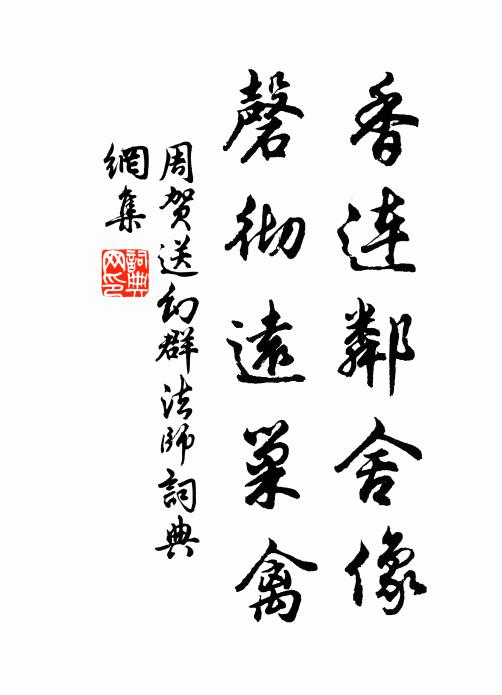 香連鄰舍像
磬徹遠巢禽
周賀送幻群法師詞典
網集
詞典網印